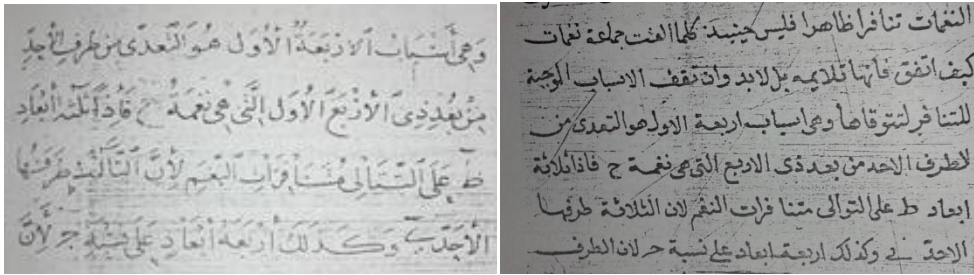 وهي أسباب الاربعة الأول هو التعدي من طرف الأحدّ
من بعد ذي الأربع الأول التي هي نغمة ح فاذا ثلثه أبعاد
ط على التتالي متنافرات النغم لأن التأليف طرفها
الأحدّ وكذلك أربعة أبعاد على نسبة ج لأن
النغمات تنافرا ظاهرا فليس حينيذ كلما الفت جماعة نغمات
كيف اتفق فانها تلايمه بل لابد وان تقف الاسباب الموجبة
للتنافر لتتوقاها وهي اسباب اربعة الاول هو التعدي من
الطرف الاحد من بعد ذي الاربع التي هي نغمة ح فاذا ثلاثة
ابعاد ط على التوالي متنافرات النغم لان الثلاثة طرفها
الاحدّ في وكذلك اربعة ابعاد على نسبة ح لان الطرف